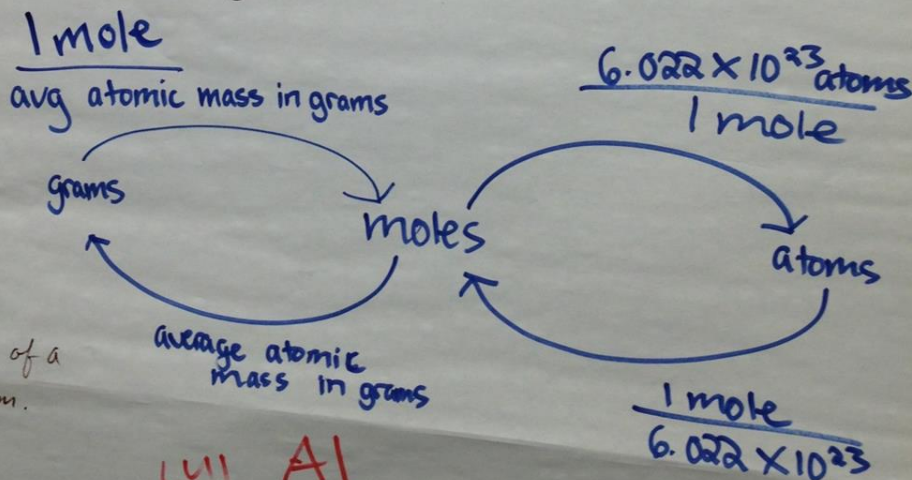 1 mole
avg atomic mass in grams
6.022 × 10²³ atoms
1 mole
grams
moles
atoms
average atomic
mass in grams
of a
1 mole
6.022 × 10²³
Al